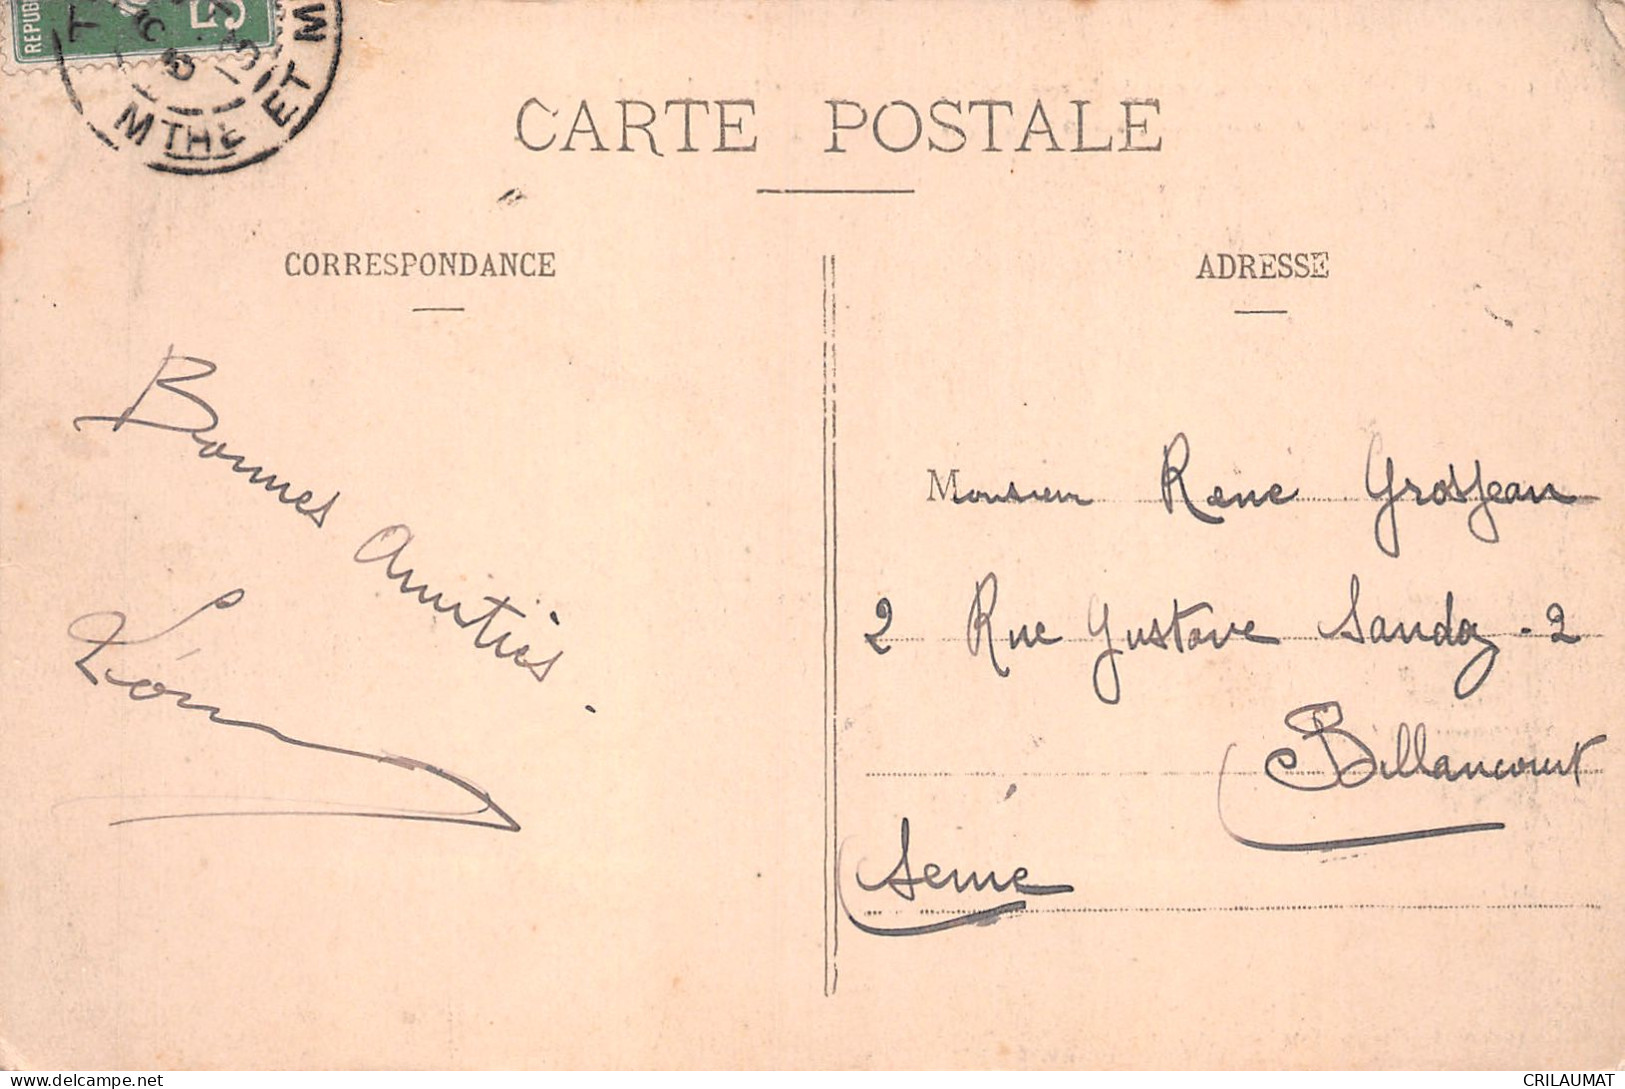 REPUB
5
MTHE ET M
CARTE POSTALE
CORRESPONDANCE
ADRESSE
Bonnes Amitiés.
Léon
Monsieur René Grosjean
2 Rue Gustave Sandoz - 2
Billancourt
Seine
CRILAUMAT